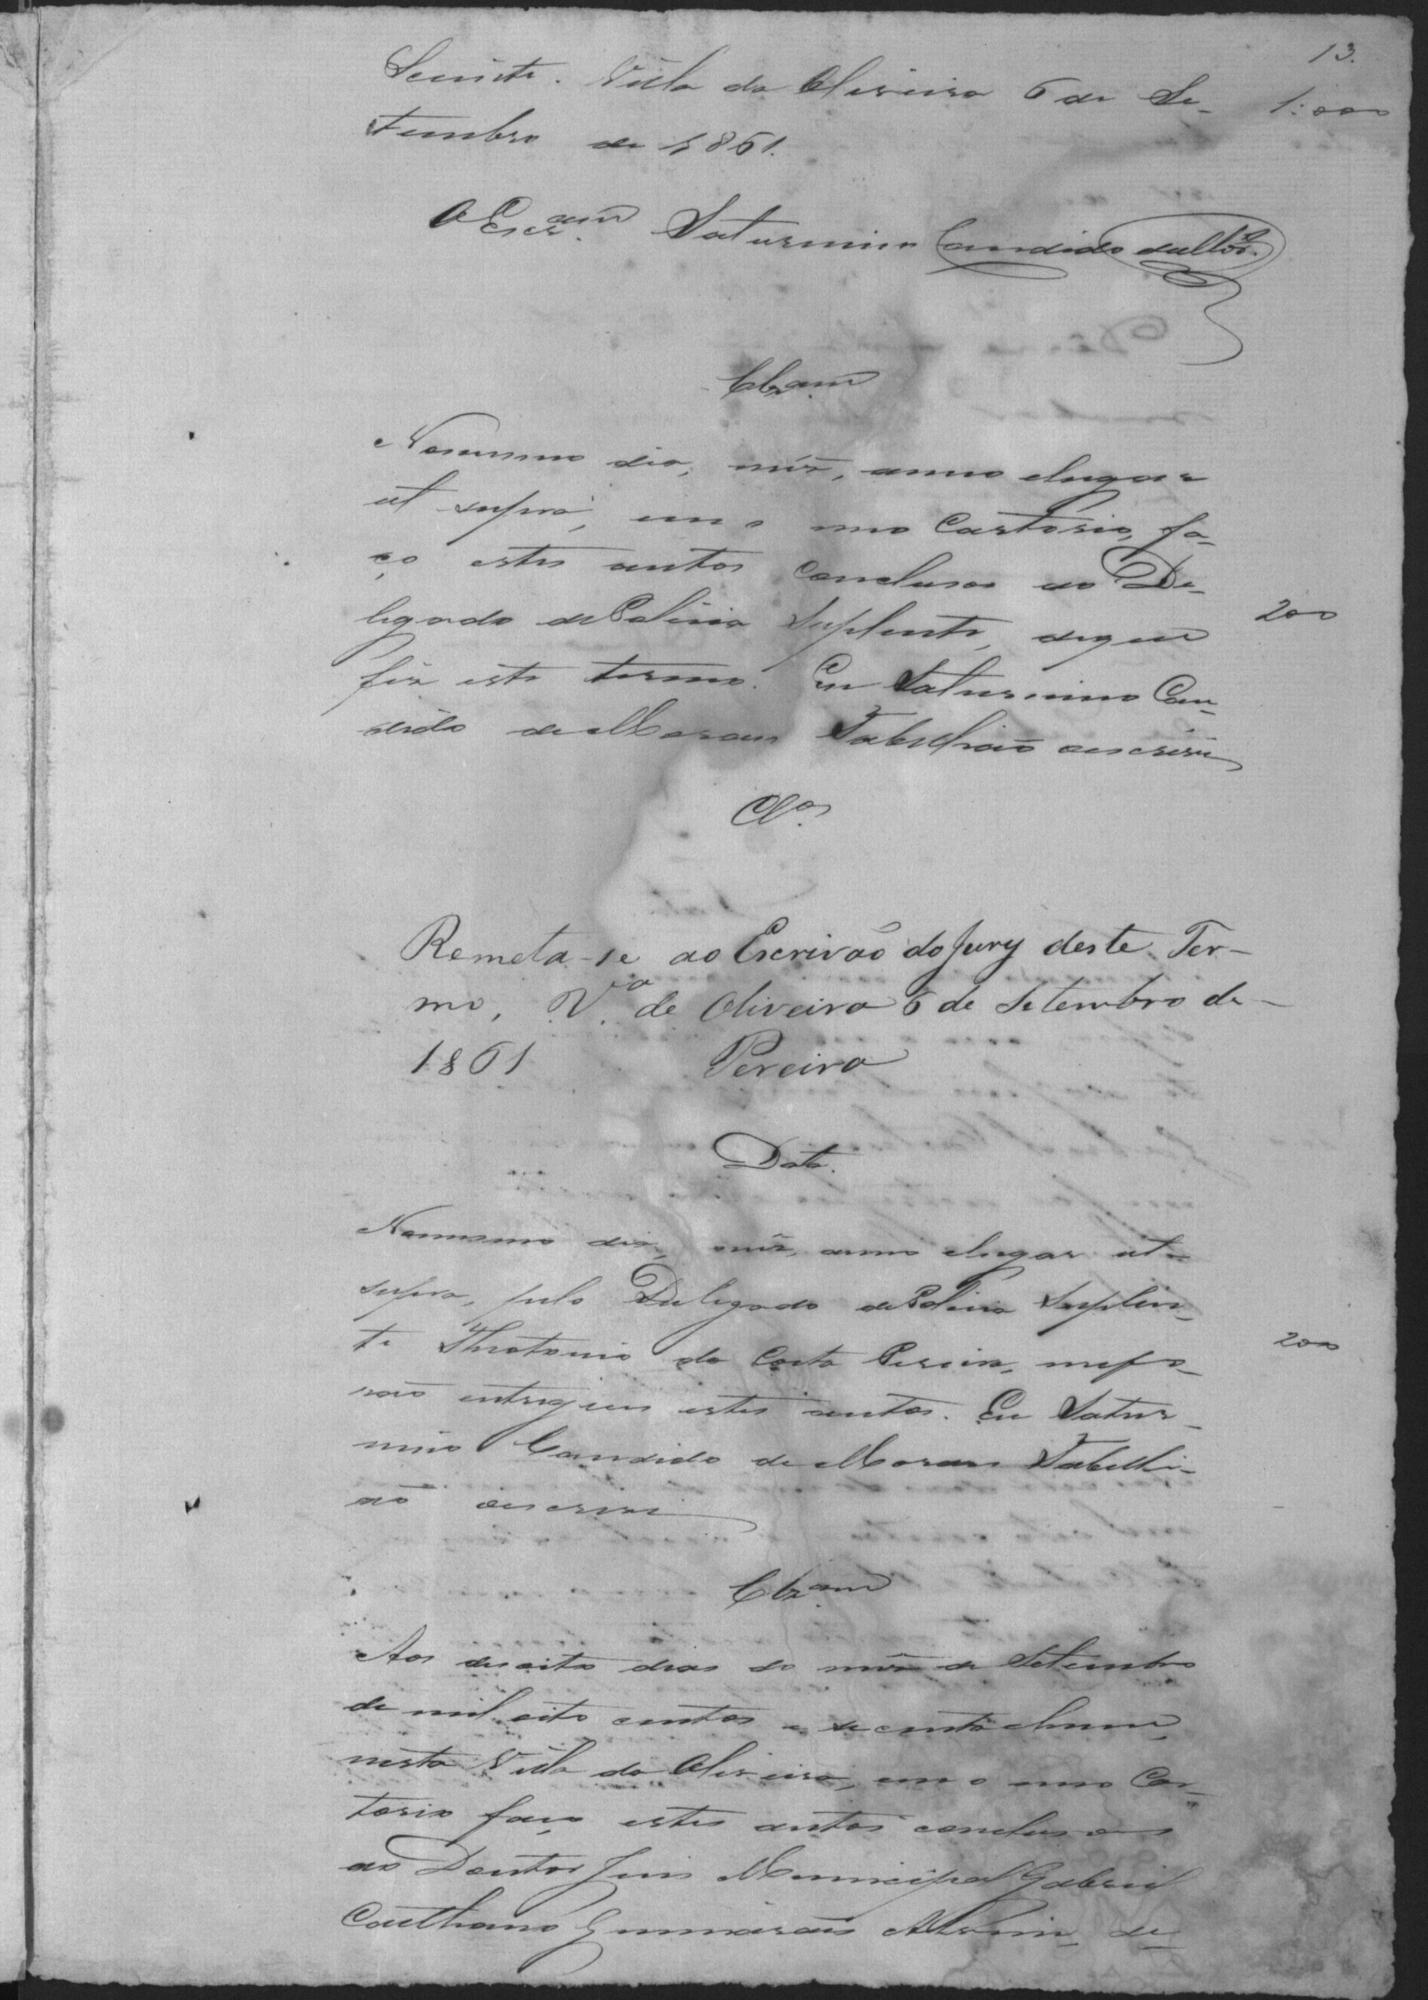 13.
Sciente. Villa da Oliveira 6 de Se- 1:000
tembro de 1861.
O Escr.am Saturnino Candido de Mor.
Clz.am
No mesmo dia, mez, anno elugar
ut supra, em o meo Cartorio, fa-
ço estes autos conclusos ao De-
legado de Policia Suplente, do que 200
fiz este termo. Eu Saturnino Can-
dido de Moraes Tabellião o escrevi
Cl.os
Remeta-se ao Escrivão do Jury deste Ter-
mo, V.a de Oliveira 6 de Setembro de
1861 Pereira
Data.
No mesmo dia, mez, anno elugar ut
supra, pelo Delegado de Policia Suplen-
te Theotonio da Costa Pereira, me fo- 200
rão entregues estes autos. Eu Satur-
nino Candido de Moraes Tabelli-
ão o escrevi
Clz.am
Aos desoito dias do mez de Setembro
de mil oito centos e secenta ehum,
nesta Villa da Oliveira, em o meo Car-
torio faço estes autos conclusos
ao Doutor Juis Municipal Gabriel
Caethano Guimarães, de